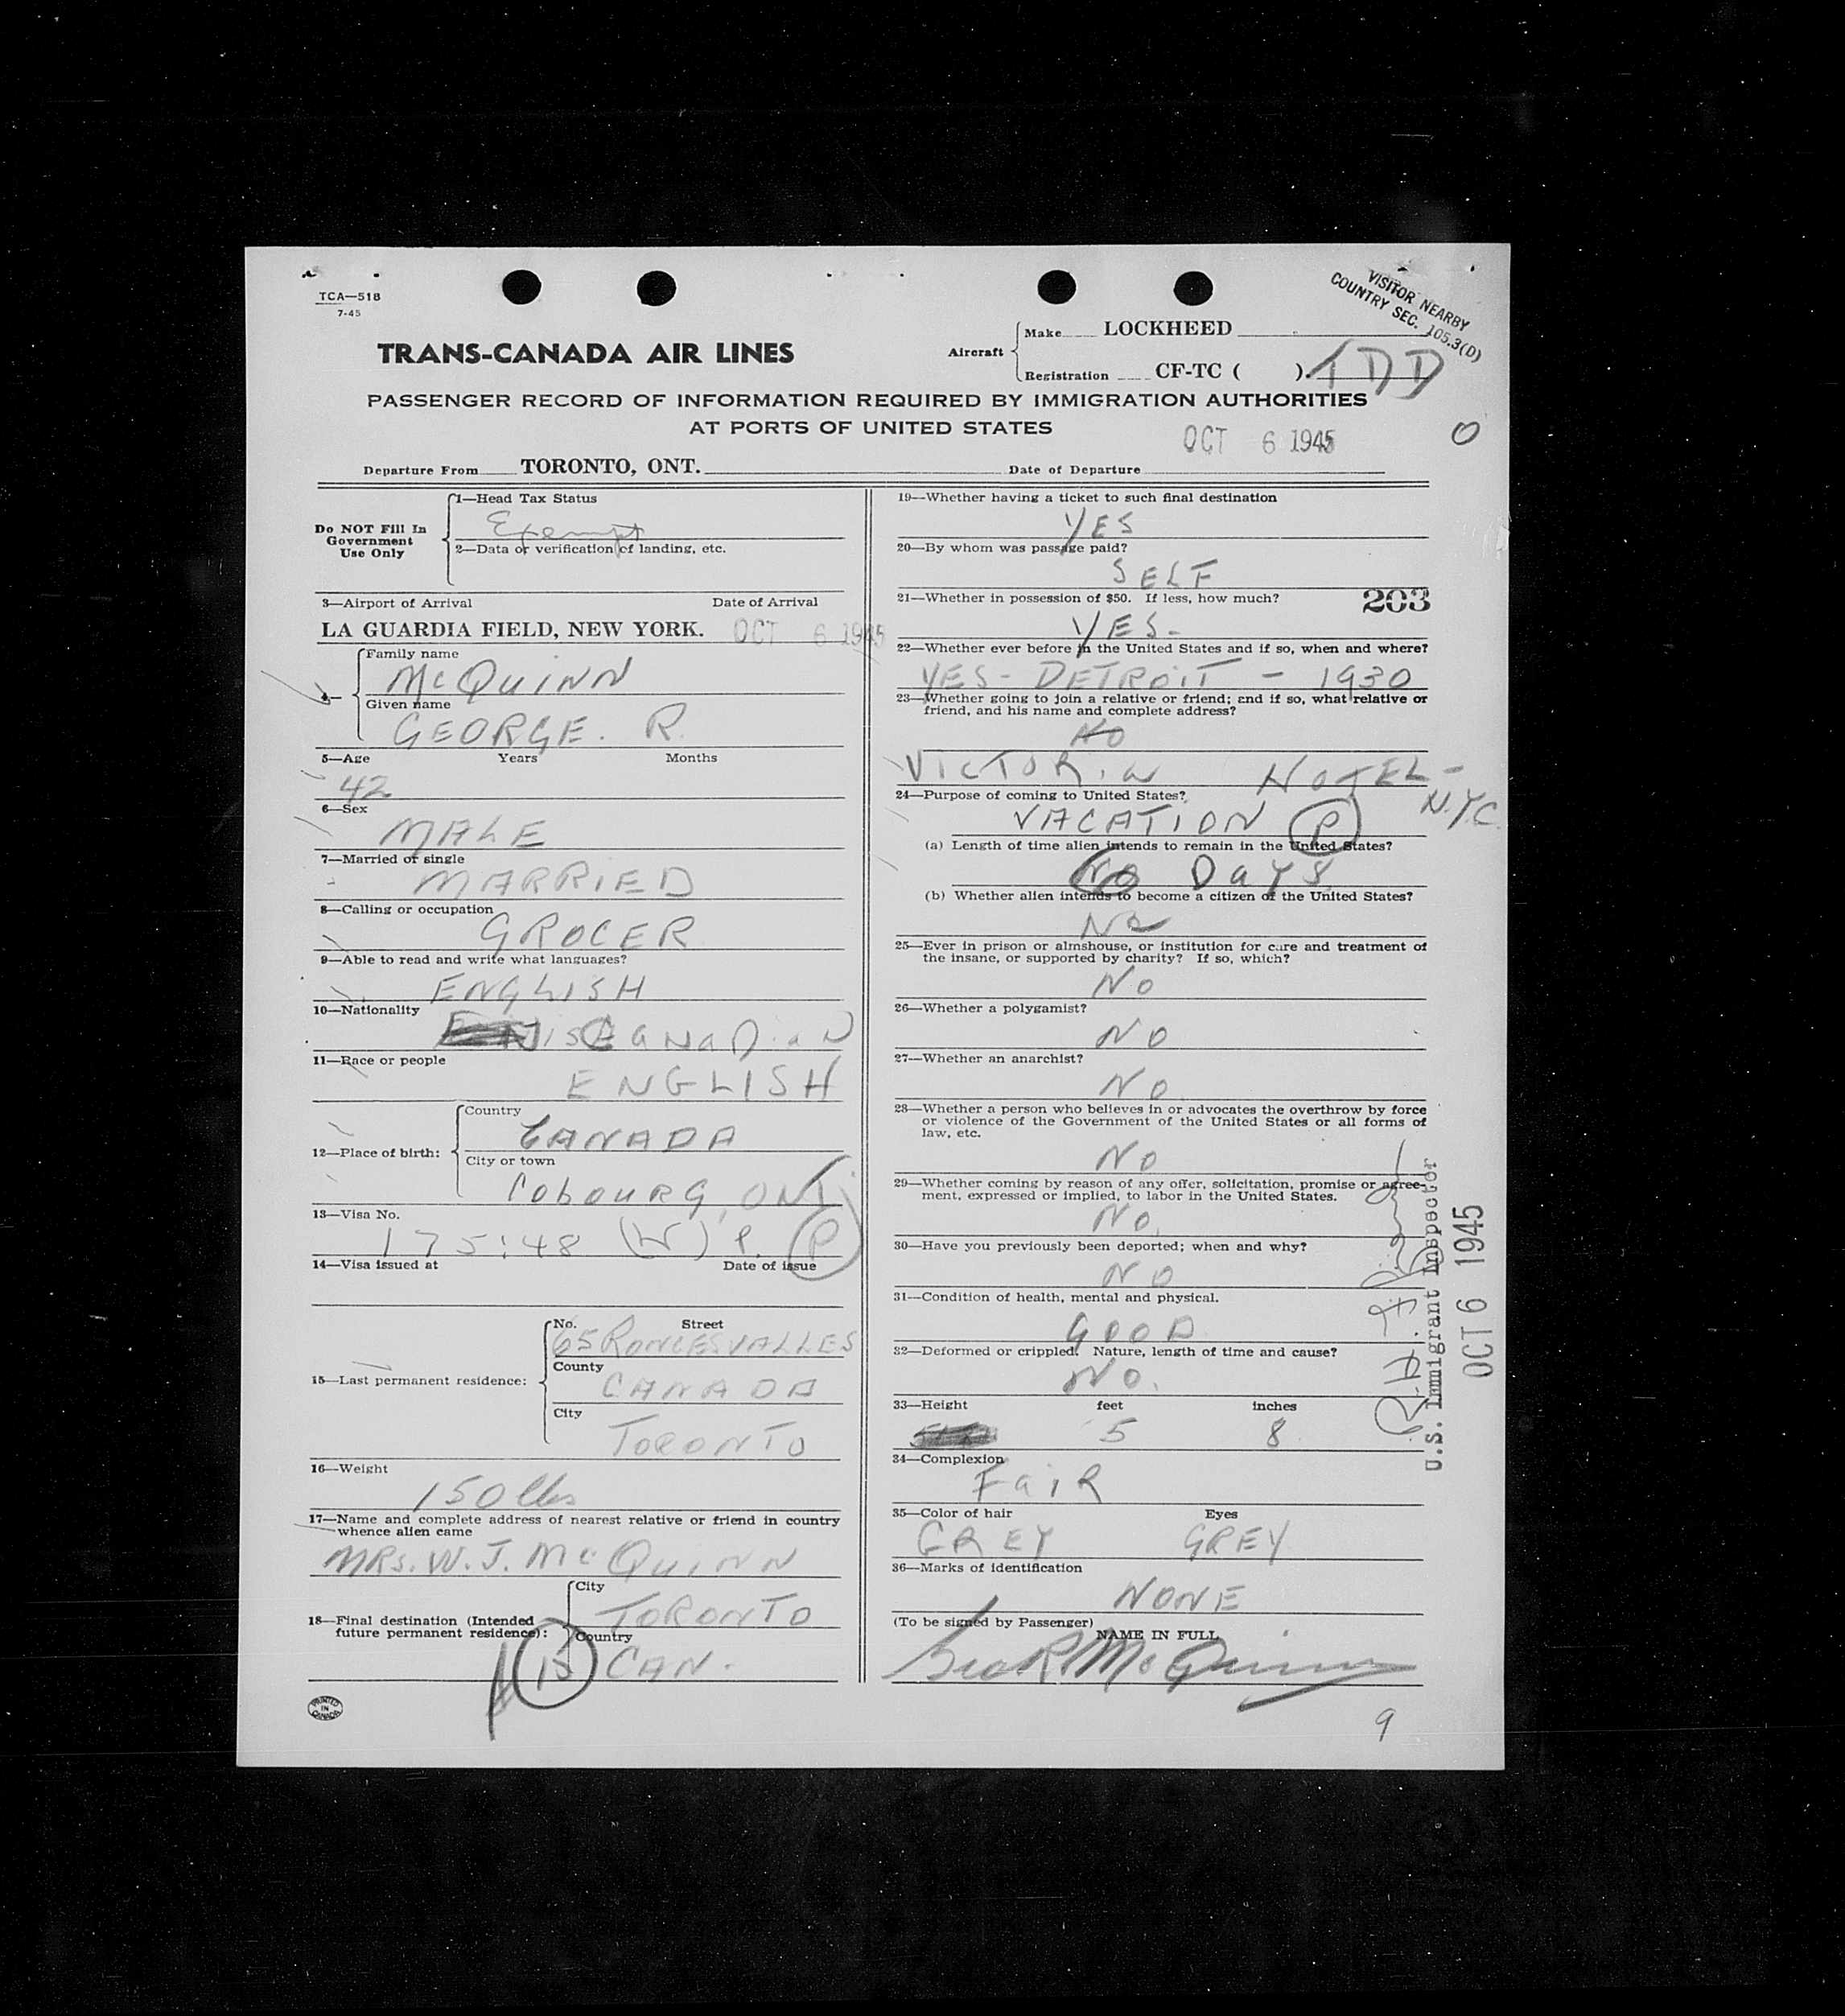 TCA—518
7-45
VISITOR NEARBY
COUNTRY SEC. 105.3(D)
TRANS-CANADA AIR LINES
Aircraft
Make LOCKHEED
Registration CF-TC ( ). TDD
PASSENGER RECORD OF INFORMATION REQUIRED BY IMMIGRATION AUTHORITIES
AT PORTS OF UNITED STATES
OCT 6 1945
O
Departure From TORONTO, ONT. Date of Departure
Do NOT Fill In
Government
Use Only
1—Head Tax Status
Exempt
2—Data or verification of landing, etc.
3—Airport of Arrival Date of Arrival
LA GUARDIA FIELD, NEW YORK. OCT 6 1945
4—
Family name
McQUINN
Given name
GEORGE. R.
5—Age Years Months
42
6—Sex
MALE
7—Married or single
MARRIED
8—Calling or occupation
GROCER
9—Able to read and write what languages?
ENGLISH
10—Nationality
CANADIAN
11—Race or people
ENGLISH
12—Place of birth:
Country
CANADA
City or town
COBOURG, ONT.
13—Visa No.
175:48 (W) P. P
14—Visa issued at Date of issue
15—Last permanent residence:
No. Street
65 RONCESVALLES
County
CANADA
City
TORONTO
16—Weight
150 lbs
17—Name and complete address of nearest relative or friend in country
whence alien came
MRS. W. J. McQUINN
18—Final destination (Intended
future permanent residence):
City
TORONTO
Country
15 CAN.
PRINTED
IN
CANADA
19—Whether having a ticket to such final destination
YES
20—By whom was passage paid?
SELF
21—Whether in possession of $50. If less, how much?
203
YES-
22—Whether ever before in the United States and if so, when and where?
YES - DETROIT - 1930
23—Whether going to join a relative or friend; and if so, what relative or
friend, and his name and complete address?
NO
VICTORIA HOTEL -
N.Y.C.
24—Purpose of coming to United States?
VACATION P
(a) Length of time alien intends to remain in the United States?
DAYS
(b) Whether alien intends to become a citizen of the United States?
NO
25—Ever in prison or almshouse, or institution for care and treatment of
the insane, or supported by charity? If so, which?
NO
26—Whether a polygamist?
NO
27—Whether an anarchist?
NO
28—Whether a person who believes in or advocates the overthrow by force
or violence of the Government of the United States or all forms of
law, etc.
NO
29—Whether coming by reason of any offer, solicitation, promise or agree-
ment, expressed or implied, to labor in the United States.
NO.
30—Have you previously been deported; when and why?
NO
31—Condition of health, mental and physical.
GOOD
32—Deformed or crippled. Nature, length of time and cause?
NO.
33—Height feet inches
5 8
34—Complexion
FAIR
35—Color of hair Eyes
GREY GREY
36—Marks of identification
NONE
(To be signed by Passenger)
NAME IN FULL
Geo R McQuinn
9
U.S. Immigrant Inspector
OCT 6 1945